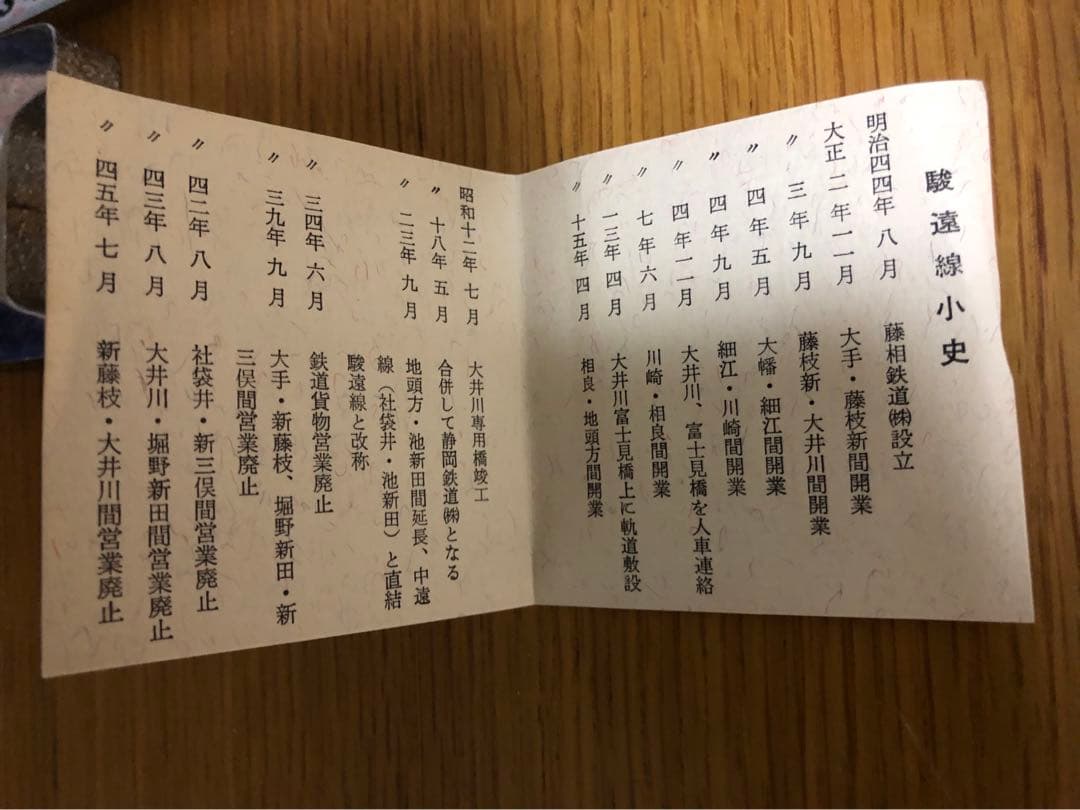 駿遠線小史
明治四四年八月 藤相鉄道㈱設立
大正二年一一月 大手・藤枝新間開業
〃三年九月 藤枝新・大井川間開業
〃四年五月 大幡・細江間開業
〃四年九月 細江・川崎間開業
〃四年一一月 大井川、富士見橋を人車連絡
〃七年六月 川崎・相良間開業
〃一三年四月 大井川富士見橋上に軌道敷設
〃十五年四月 相良・地頭方間開業
昭和十二年七月 大井川専用橋竣工
〃十八年五月 合併して静岡鉄道㈱となる
〃二三年九月 地頭方・池新田間延長、中遠
線（社袋井・池新田）と直結
駿遠線と改称
〃三四年六月 鉄道貨物営業廃止
〃三九年九月 大手・新藤枝、堀野新田・新
三俣間営業廃止
〃四二年八月 社袋井・新三俣間営業廃止
〃四三年八月 大井川・堀野新田間営業廃止
〃四五年七月 新藤枝・大井川間営業廃止